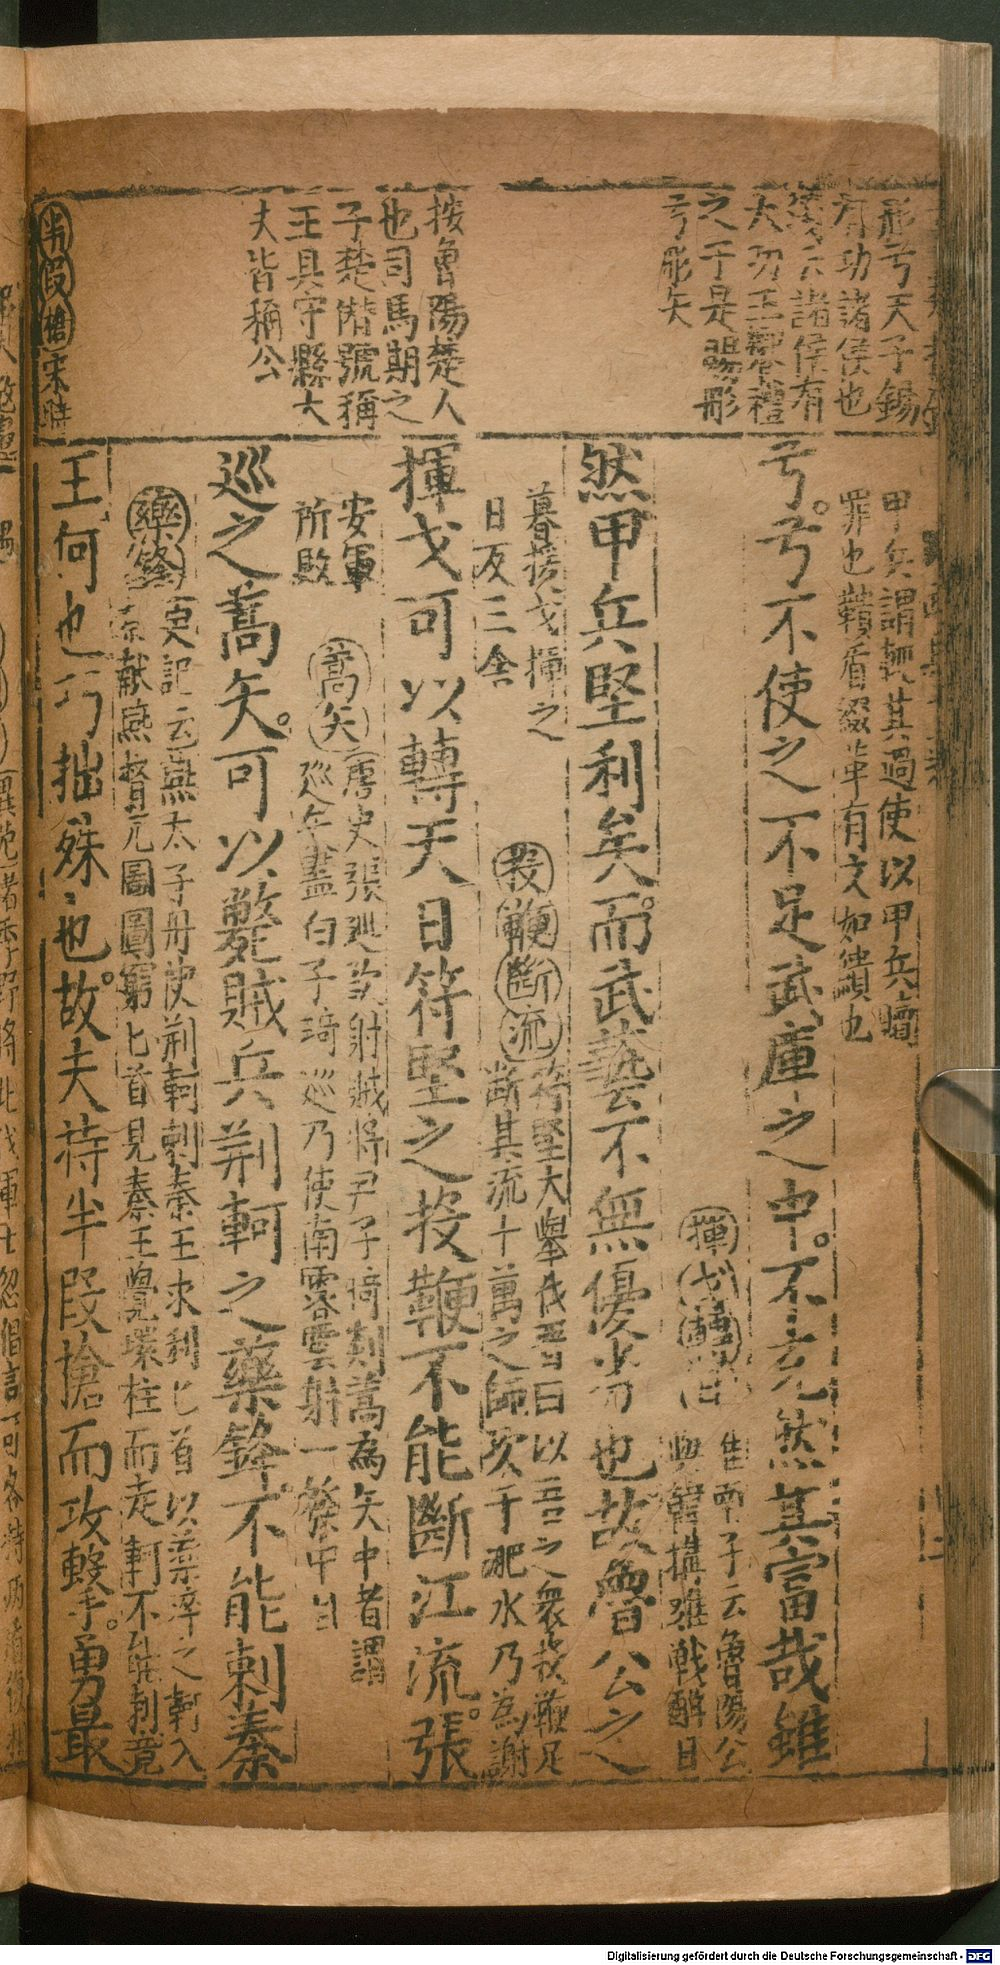 彤弓天子錫
有功諸侯也
諸侯有
大功王饗禮
之于是賜彤
弓彤矢
按魯陽楚人
也司馬期之
子楚僭號稱
王其守縣大
夫皆稱公
半假槍宋時
甲兵謂輕其過使以甲兵贖
罪也鞼盾綴革有文如繢也
弓。弓不使之不足武庫之中。不亦充然其富哉雖
揮戈轉日
淮南子云魯陽公
與韓搆難戰酣日
然甲兵堅利矣。而武藝不無優劣也故魯公之
暮援戈揮之
日反三舍
投鞭斷流
符堅大舉伐晉曰以吾之衆投鞭足
斷其流十萬之師次于淝水乃為謝
揮戈可以轉天日符堅之投鞭不能斷江流。張
安軍
所敗
蒿矢
唐史張巡欲射賊將尹子琦剡蒿為矢中者謂
巡矢盡白子琦巡乃使南霽雲射一發中目
巡之蒿矢。可以斃賊兵荊軻之藥鋒不能刺秦
藥鋒
史記云燕太子丹使荊軻刺秦王求利匕首以藥淬之軻入
秦献燕督亢圖圖窮匕首見秦王覺環柱而走軻不能刺竟
王何也巧拙殊也。故夫待半段搶而攻擊。勇最
Digitalisierung gefördert durch die Deutsche Forschungsgemeinschaft - DFG